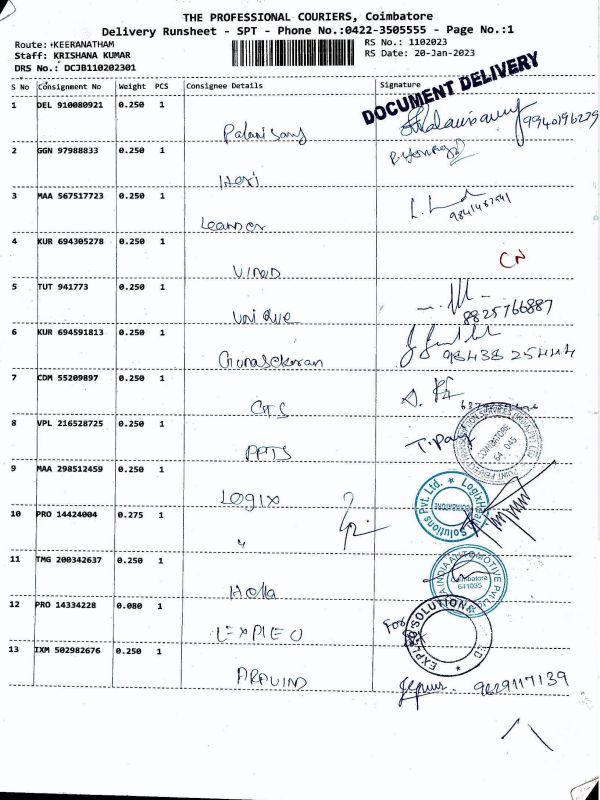 THE PROFESSIONAL COURIERS, Coimbatore
Delivery Runsheet - SPT - Phone No.:0422-3505555 - Page No.:1
Route: KEERANATHAM
Staff: KRISHANA KUMAR
DRS No.: DCJB110202301
RS No.: 1102023
RS Date: 20-Jan-2023
DOCUMENT DELIVERY
S No Consignment No Weight PCS Consignee Details Signature
1 DEL 910080921 0.250 1 Palanisamy 9940196279
2 GGN 97988833 0.250 1 Hari
3 MAA 567517723 0.250 1 Leander
4 KUR 694305278 0.250 1 VINOD CN
5 TUT 941773 0.250 1 Unique 8825766887
6 KUR 694591813 0.250 1 Gunasekaran 98438 25444
7 CDM 55209897 0.250 1 CTS
8 VPL 216528725 0.250 1 PPTS
COIMBATORE
9 MAA 298512459 0.250 1 LOGIX
Solutions Pvt. Ltd. ★
COIMBATORE
10 PRO 14424004 0.275 1 "
11 TMG 200342637 0.250 1 Holla
INDIA AUTOMOTIVE PVT LTD
Coimbatore
641035
12 PRO 14334228 0.080 1 EXPLEO
For
EXPLEO SOLUTIONS
13 IXM 502982676 0.250 1 ARAVIND 9629117139